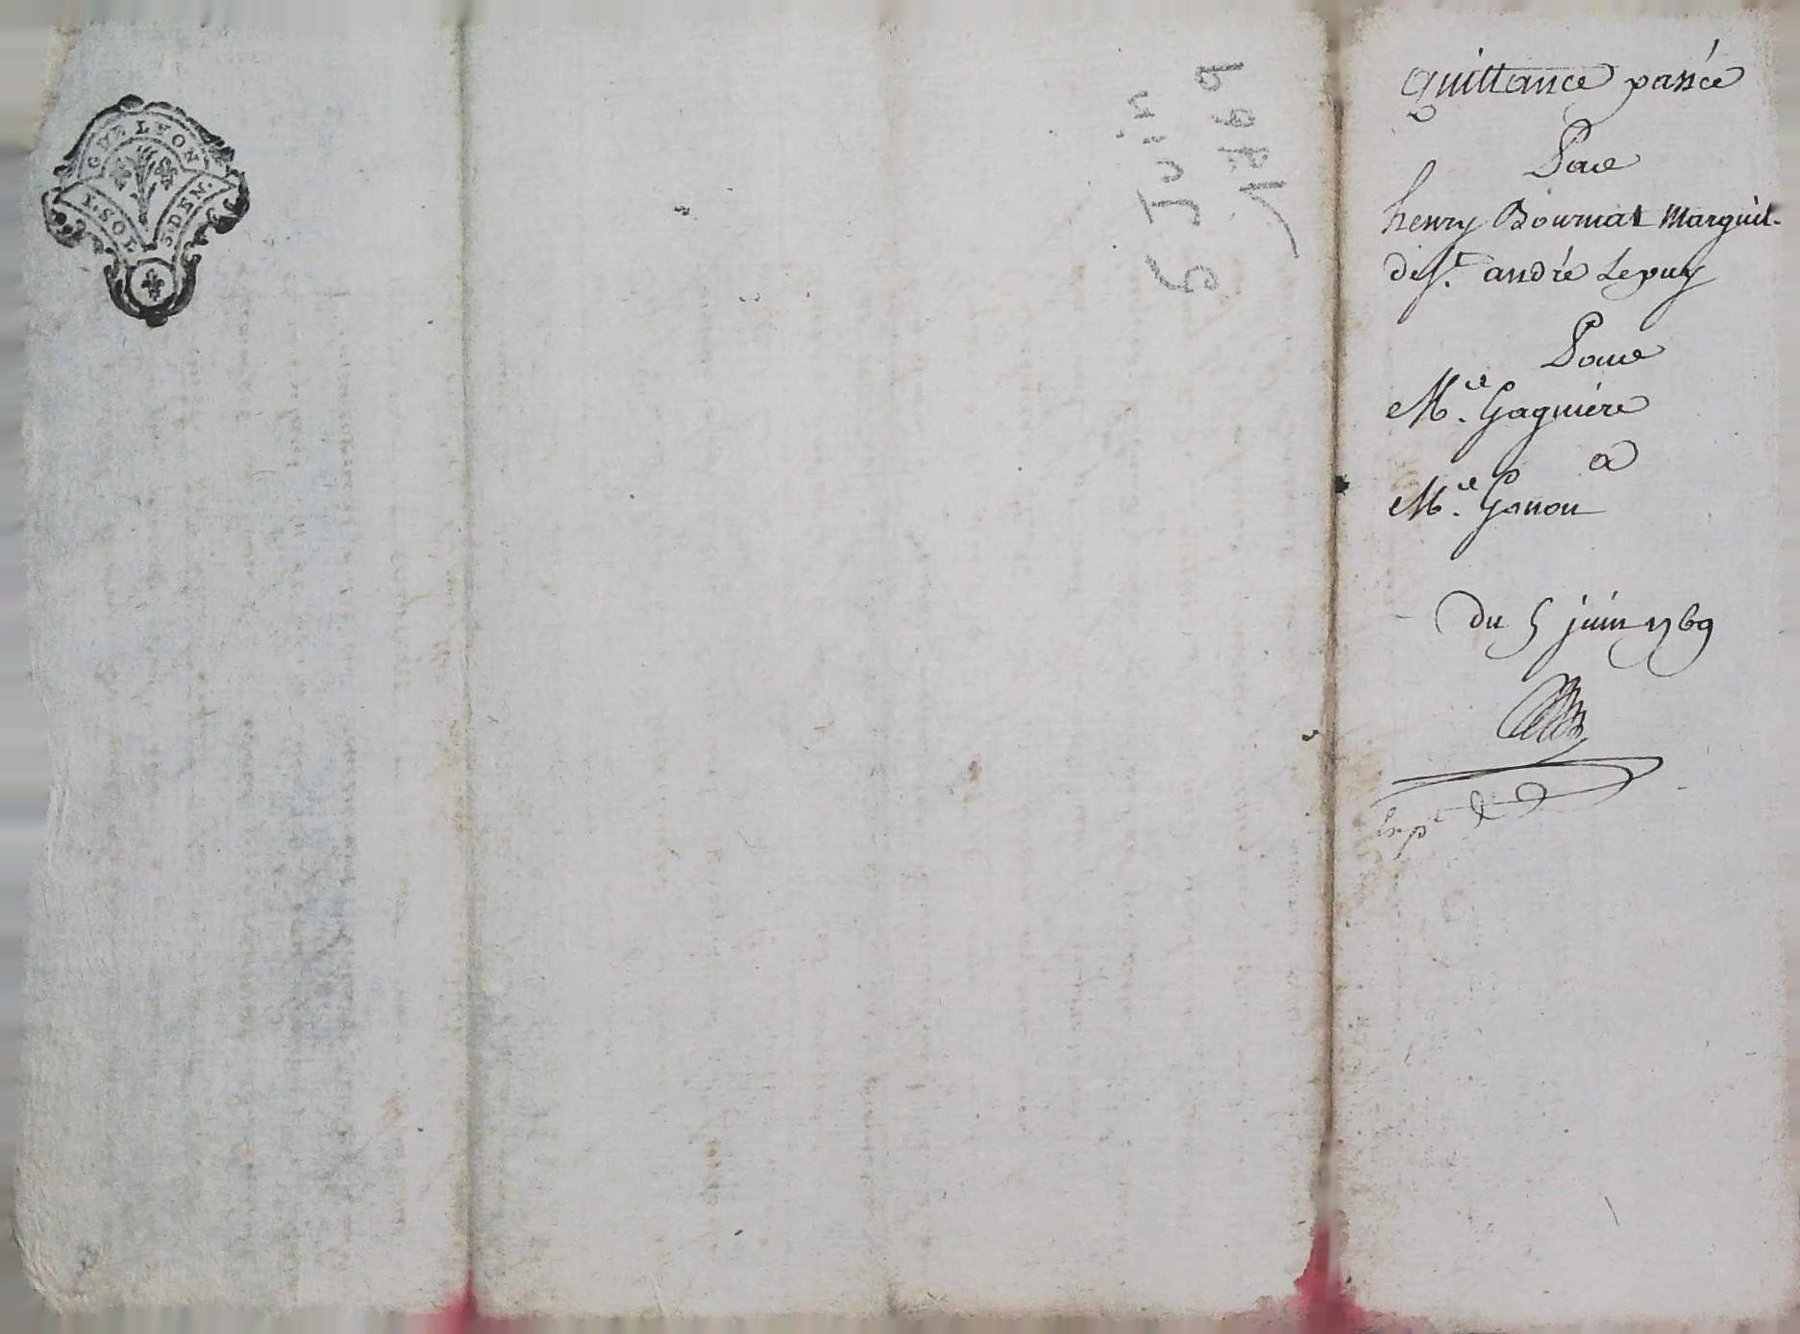 GNE. LYON
1. SOL 8. DEN.
5 Juin
1769
quittance passée
Par
henry Bournat Marguil.
de St. andré Lepuy
Pour
Mre. Gagniére
a
Mre. Gonon
du 5 juin 1769